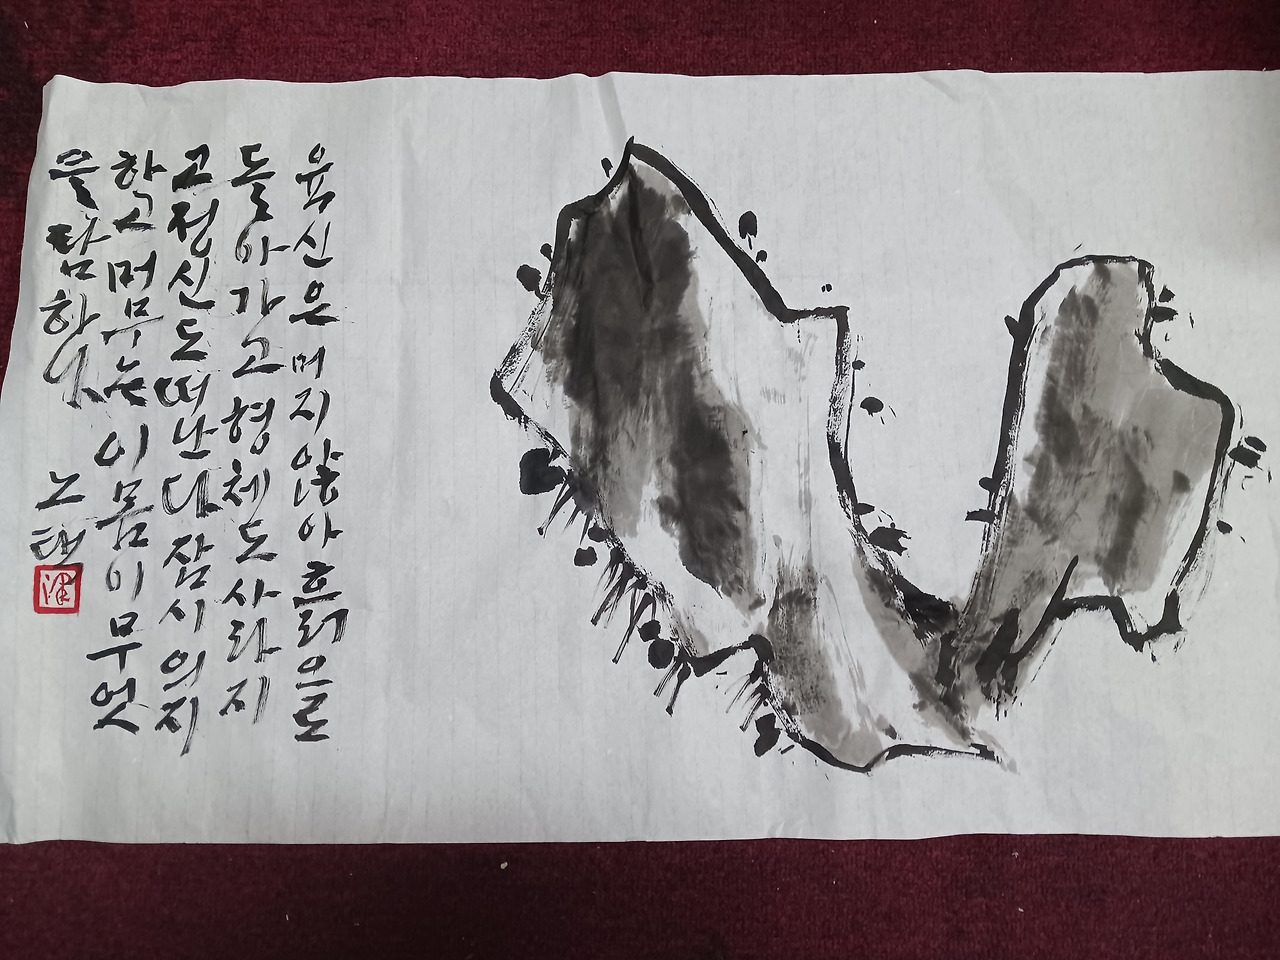 육신은 머지않아 흙으로
돌아가고 형체도 사라지
고 정신도 떠난다 잠시 의지
하고 머무는 이 몸이 무엇
을 탐하나
노탄